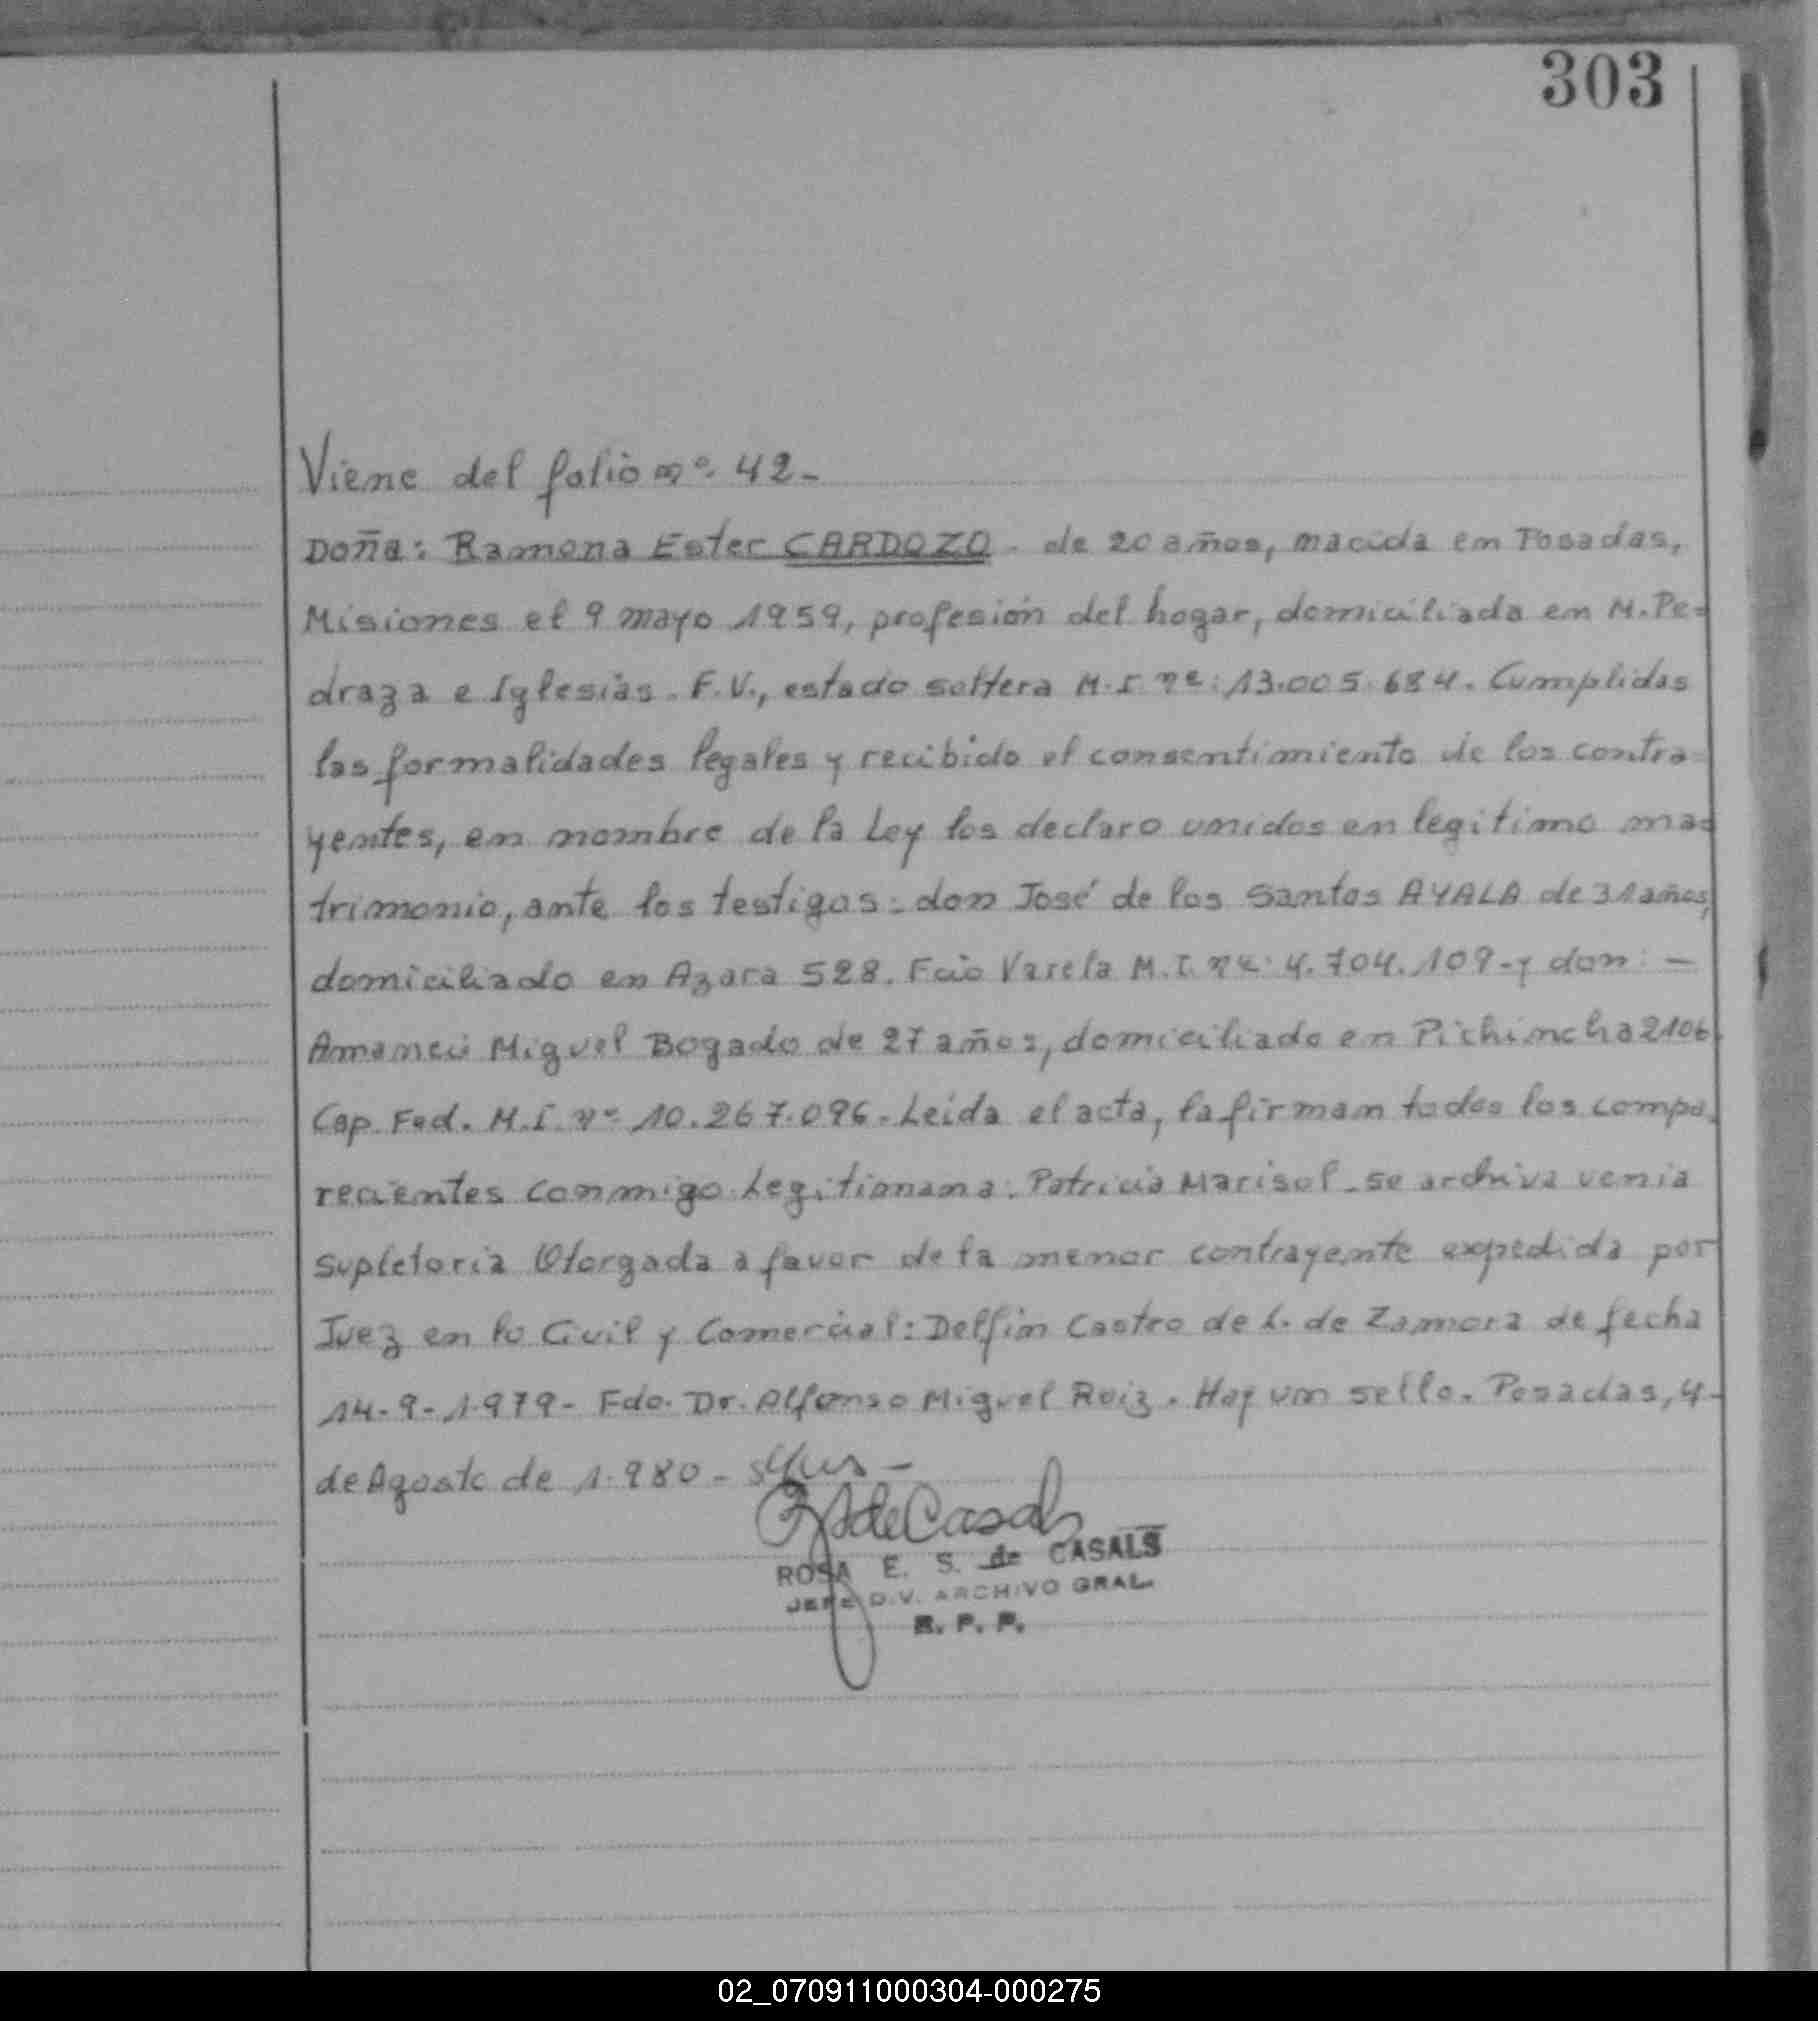 303
Viene del folio nº 42-
Doña: Ramona Ester CARDOZO - de 20 años, nacida en Posadas,
Misiones el 9 mayo 1959, profesión del hogar, domiciliada en M. Pe=
draza e Iglesias. F.V., estado soltera M.I. nº: 13.005.684. Cumplidas
las formalidades legales y recibido el consentimiento de los contra=
yentes, en nombre de la Ley los declaro unidos en legitimo ma=
trimonio, ante los testigos: don José de los Santos AYALA de 31 años,
domiciliado en Azara 528. Fcio Varela M.I. nº: 4.704.109-y don: -
Miguel Bogado de 27 años, domiciliado en Pichincha 2106
Cap. Fed. M.I. nº 10.267.096-Leida el acta, la firman todos los compa.
recientes conmigo. Patricia Marisol-se archiva venia
supletoria Otorgada a favor de la menor contrayente expedida por
Juez en lo Civil y Comercial: Delfin Castro de L. de Zamora de fecha
14-9-1.979- Fdo. Dr. Alfonso Miguel Roiz. Hay un sello. Posadas, 4-
de Agosto de 1.980-
de Casals
ROSA E. S. de CASALS
JEFE DIV. ARCHIVO GRAL.
R. P. P.
02_070911000304-000275